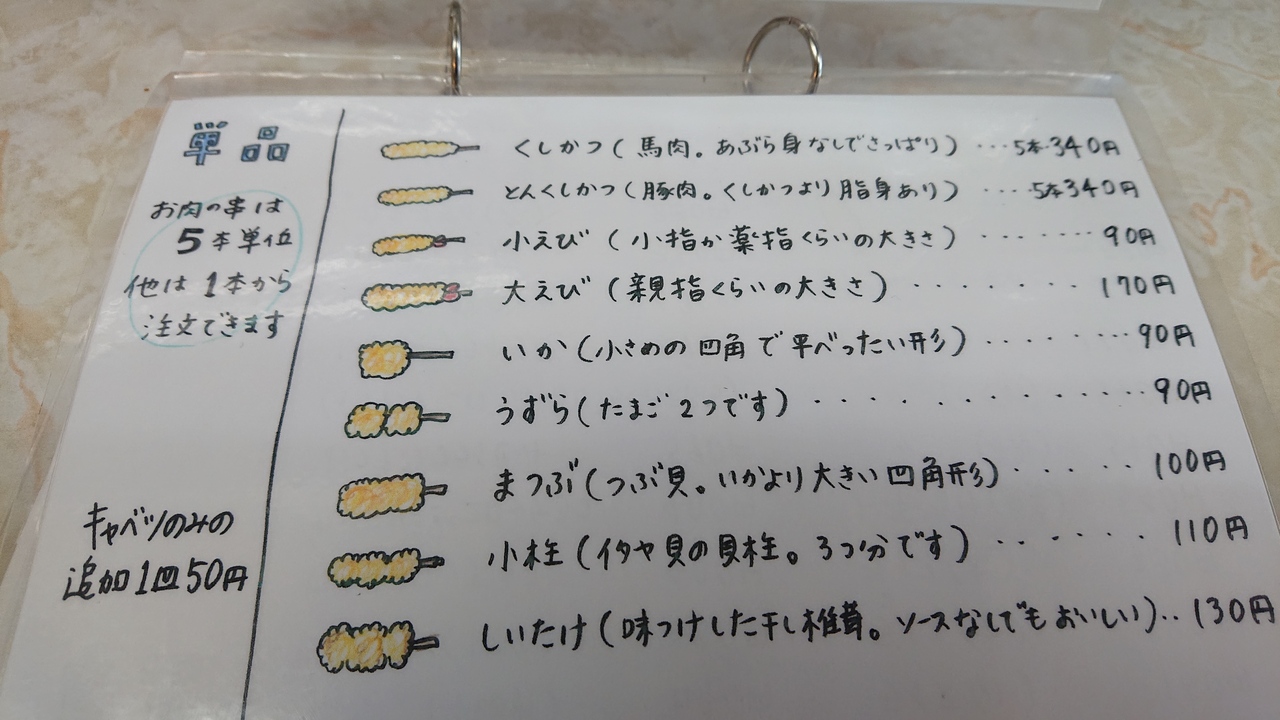 単品
お肉の串は
5本単位
他は1本から
注文できます
キャベツのみの
追加1皿50円
くしかつ(馬肉。あぶら身なしでさっぱり)…5本340円
とんくしかつ(豚肉。くしかつより脂身あり)…5本340円
小えび(小指か薬指くらいの大きさ)・・・・・・・90円
大えび(親指くらいの大きさ)・・・・・・・170円
いか(小さめの四角で平べったい形)・・・・・・・90円
うずら(たまご2つです)・・・・・・・・・・・・・90円
まつぶ(つぶ貝。いかより大きい四角形)・・・・・100円
小柱(イタヤ貝の貝柱。3つ分です)・・・・・・110円
しいたけ(味つけした干し椎茸。ソースなしでもおいしい)‥130円